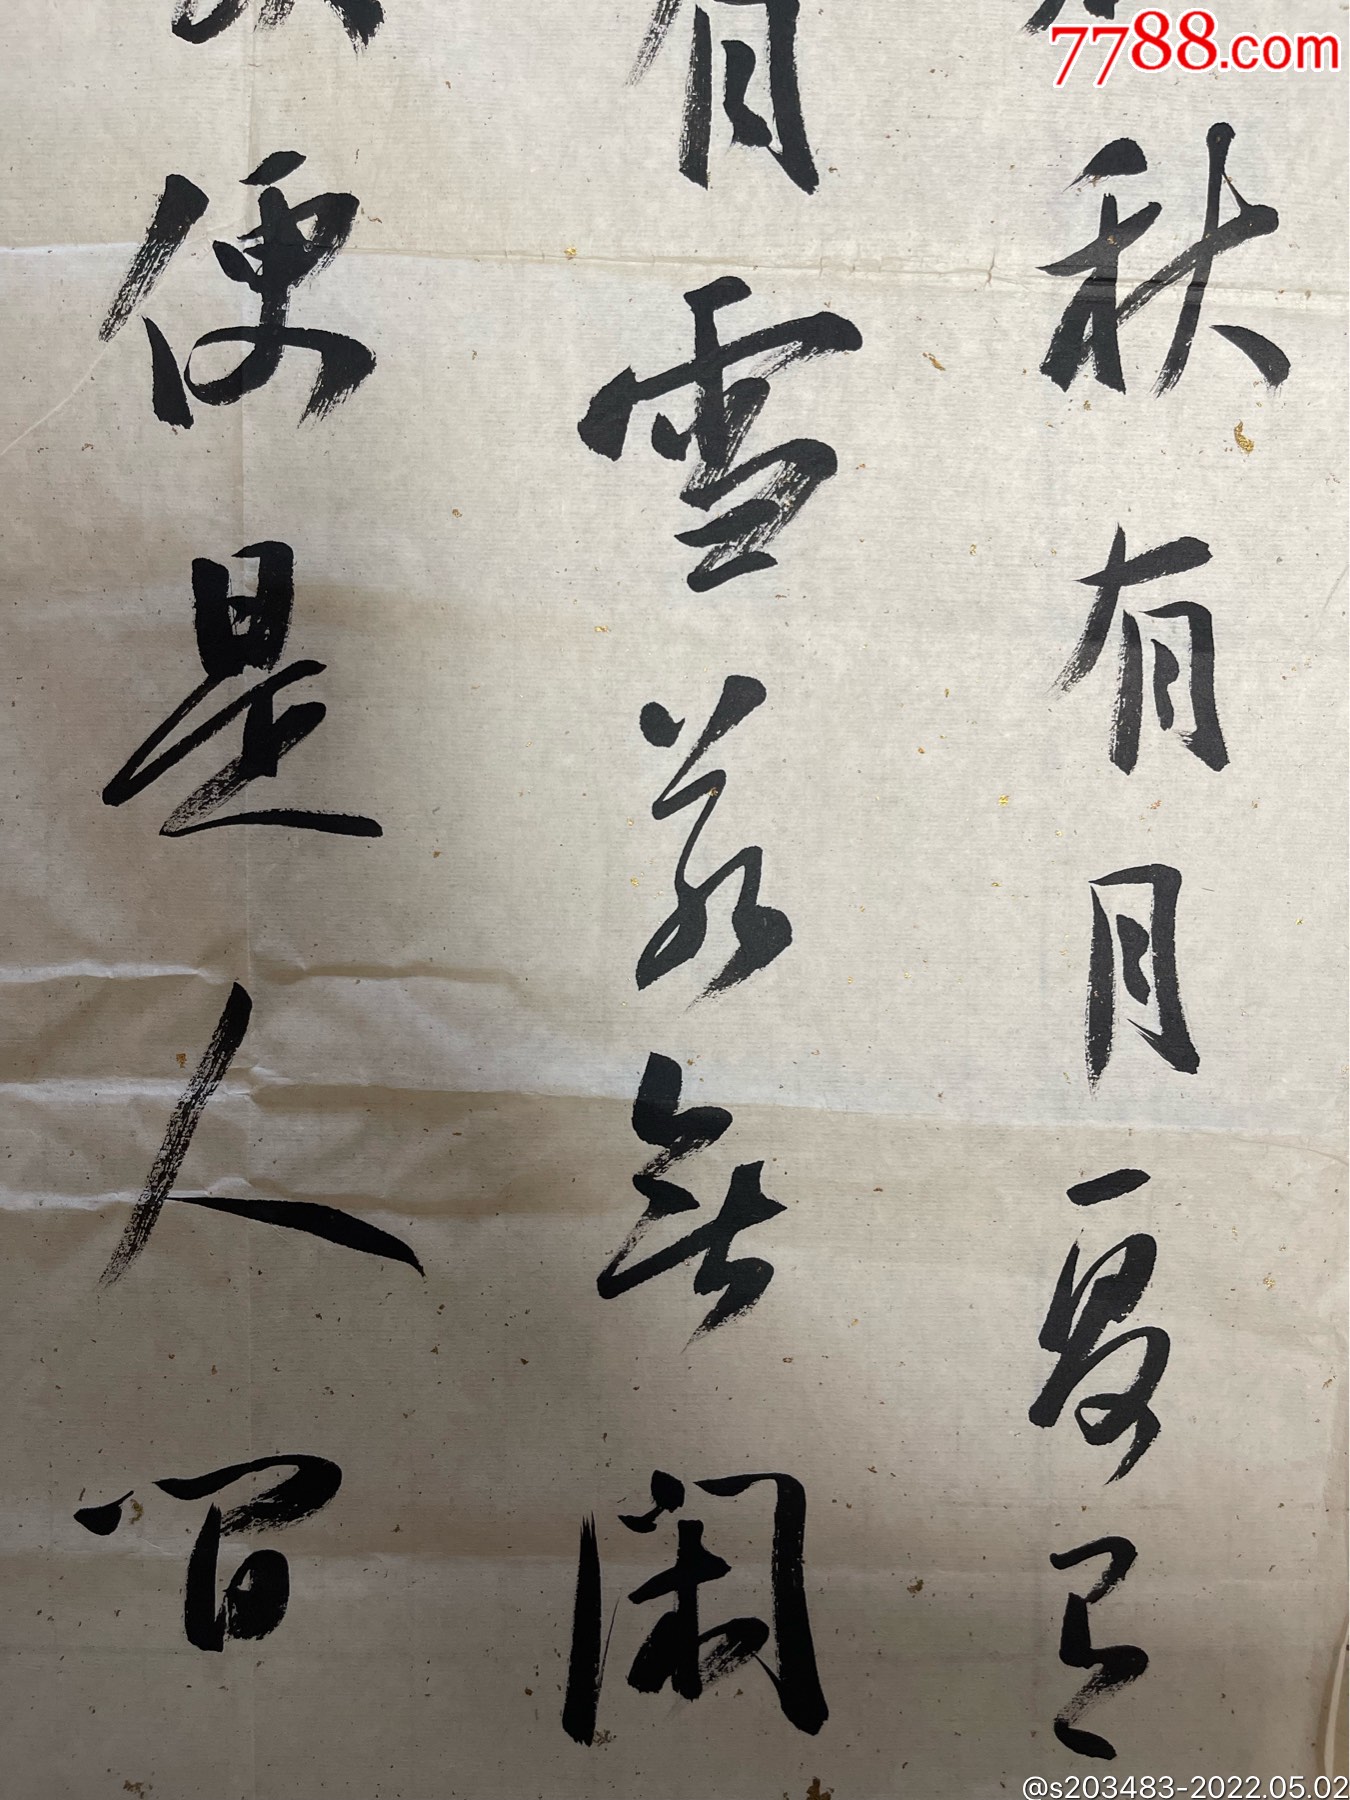 7788.com
秋有月夏有
有雪若無閑
便是人間
@s203483-2022.05.02